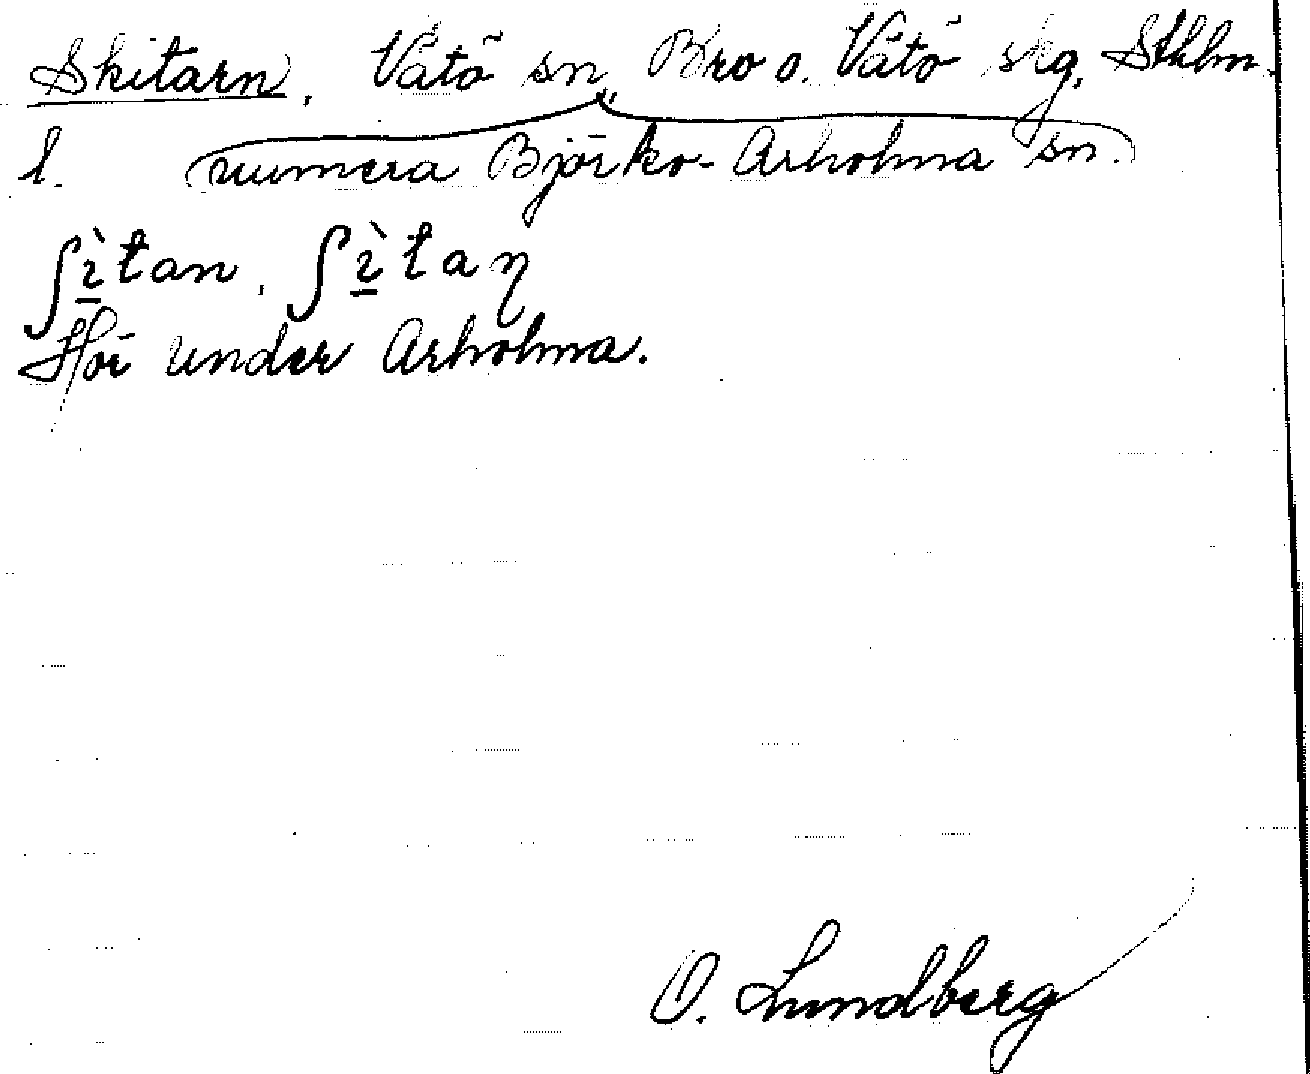 Skitarn, Vätö sn, Bro o. Vätö skg, Sthlm.
l. (numera Björkö-Arholma sn.)
ʃì̱tan, ʃì̱taŋ
Hör under Arholma.
O. Lundberg